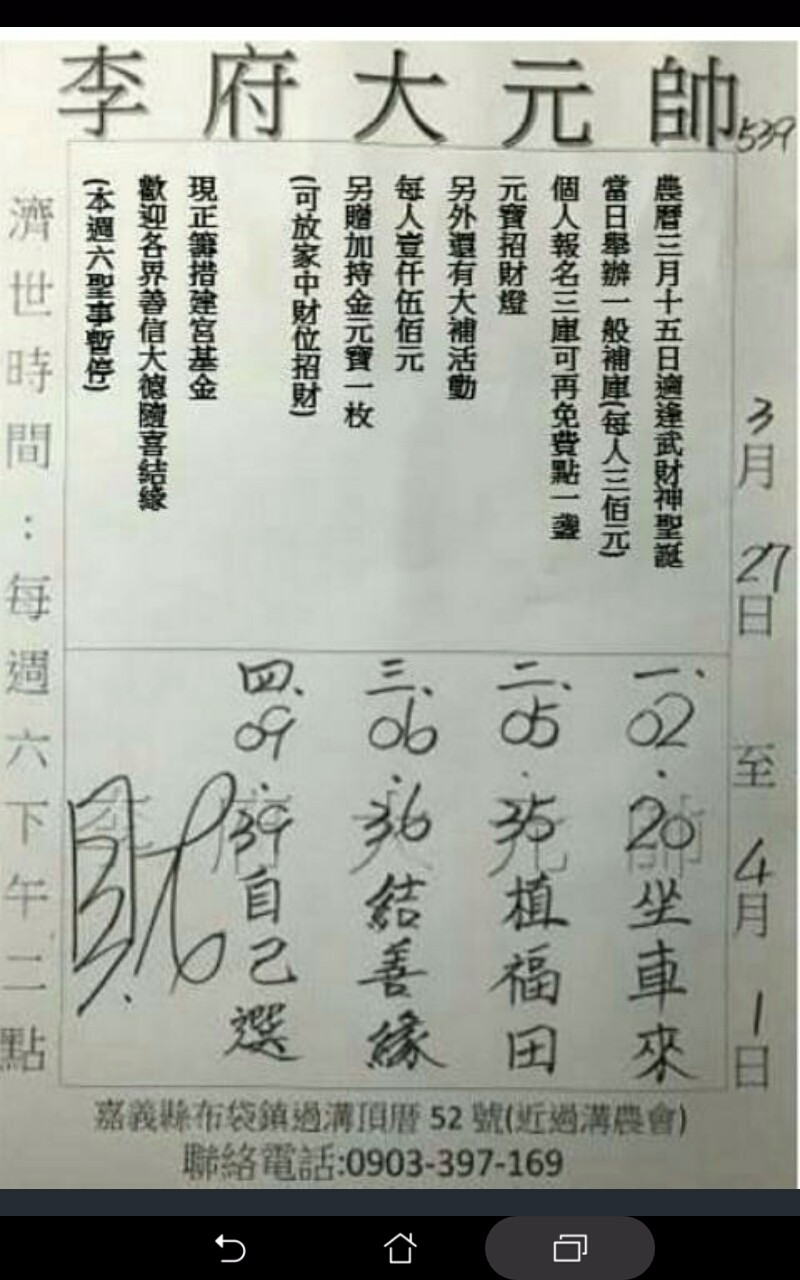 李府大元帥
539
農曆三月十五日適逢武財神聖誕
當日舉辦一般補庫(每人三佰元)
個人報名三庫可再免費點一盞
元寶招財燈
另外還有大補活動
每人壹仟伍佰元
另贈加持金元寶一枚
(可放家中財位招財)
現正籌措建宮基金
歡迎各界善信大德隨喜結緣
(本週六聖事暫停)
3月27日至4月1日
一、02.20坐車來
二、05.35植福田
三、06.36結善緣
四、09.39自己選
財
李府大元帥
濟世時間:每週六下午二點
嘉義縣布袋鎮過溝頂厝52號(近過溝農會)
聯絡電話:0903-397-169